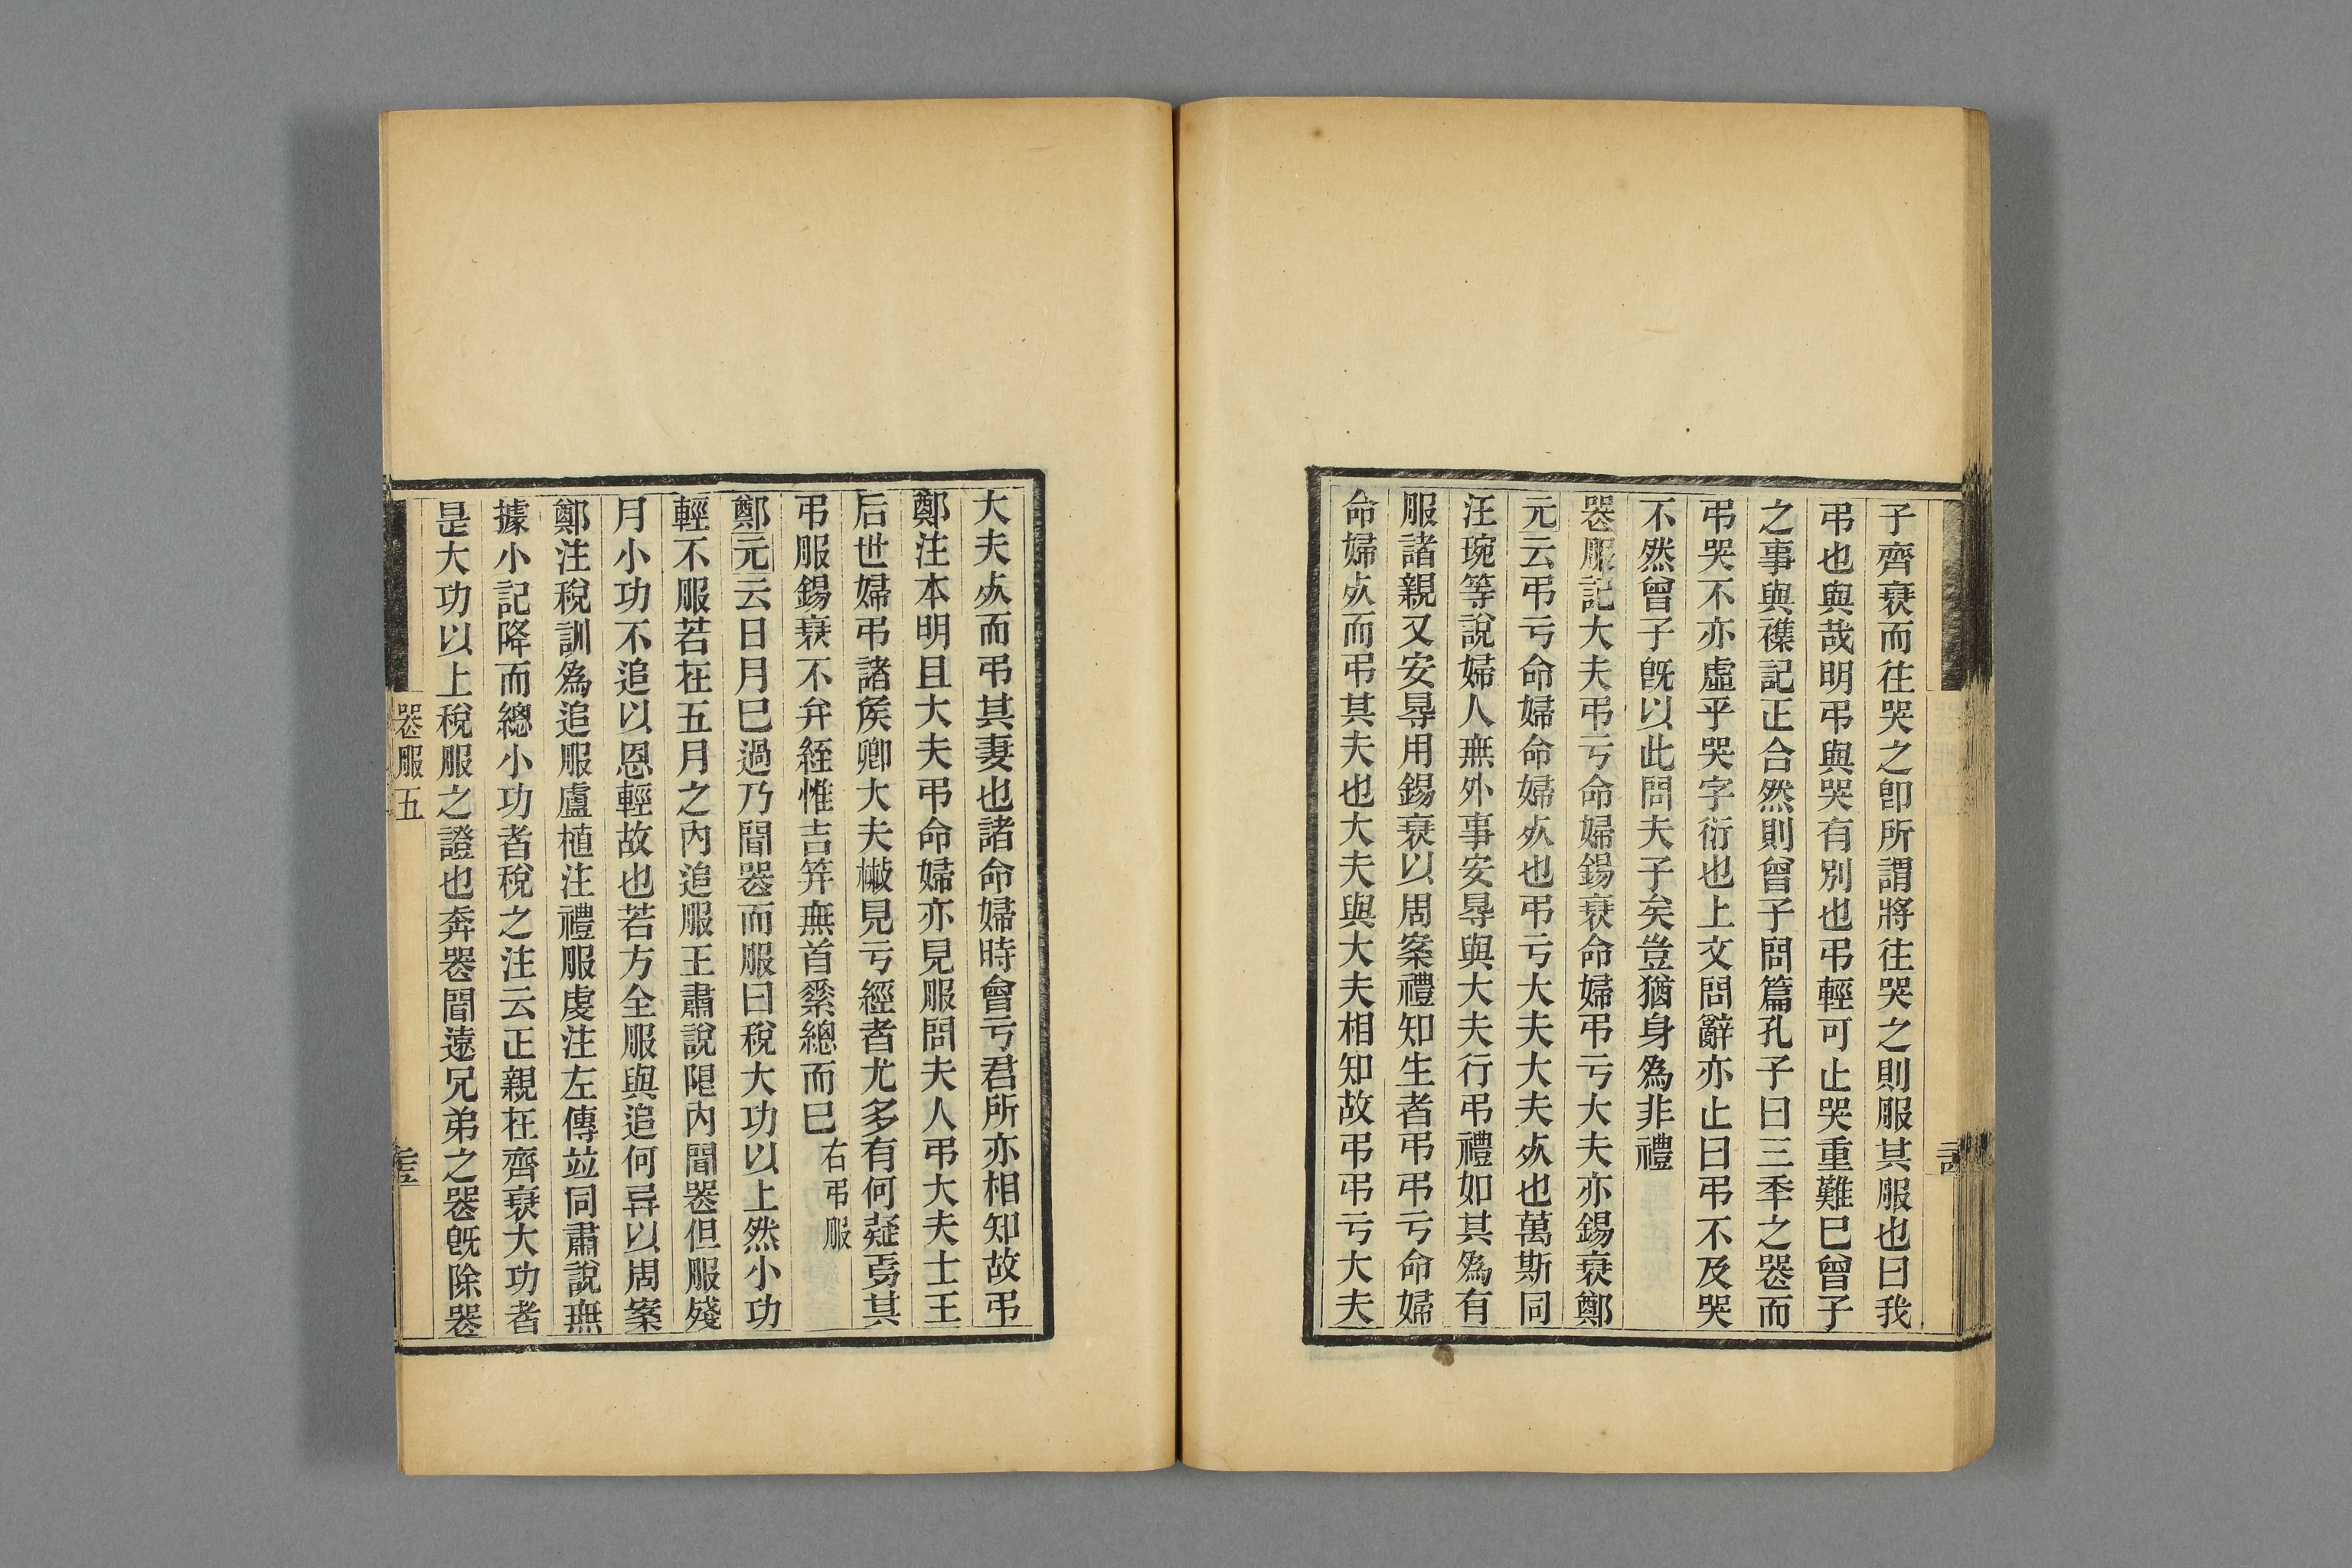 子齊衰而往哭之卽所謂將往哭之則服其服也曰我
弔也與哉明弔與哭有別也弔輕可止哭重難巳曾子
之事與襍記正合然則曾子問篇孔子曰三秊之喪而
弔哭不亦虛乎哭字衍也上文問辭亦止曰弔不及哭
不然曾子旣以此問夫子矣豈猶身爲非禮
喪服記大夫弔亏命婦錫衰命婦弔亏大夫亦錫衰鄭
元云弔亏命婦命婦𣦸也弔亏大夫大夫𣦸也萬斯同
汪琬等說婦人無外事安㝵與大夫行弔禮如其爲有
服諸親又安㝵用錫衰以周案禮知生者弔弔亏命婦
命婦𣦸而弔其夫也大夫與大夫相知故弔弔亏大夫
大夫𣦸而弔其妻也諸命婦時會亏君所亦相知故弔
鄭注本明且大夫弔命婦亦見服問夫人弔大夫士王
后世婦弔諸矦卿大夫㪚見亏經者尤多有何疑焉其
弔服錫衰不弁絰惟吉笄無首縈總而巳右弔服
鄭元云日月巳過乃聞喪而服曰稅大功以上然小功
輕不服若在五月之內追服王肅說限內聞喪但服殘
月小功不追以恩輕故也若方全服與追何異以周案
鄭注稅訓爲追服盧植注禮服虔注左傳竝同肅說無
據小記降而總小功者稅之注云正親在齊衰大功者
是大功以上稅服之證也奔喪聞遠兄弟之喪旣除喪
喪服五